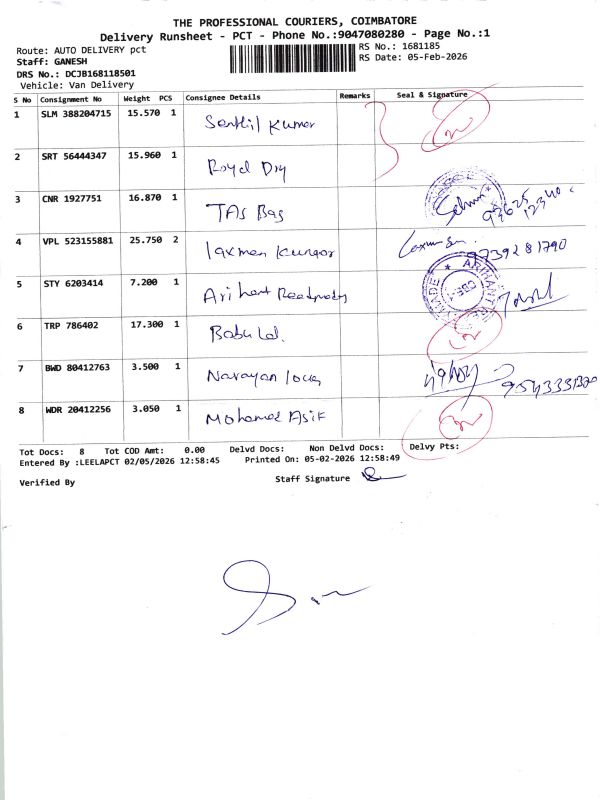 THE PROFESSIONAL COURIERS, COIMBATORE
Delivery Runsheet - PCT - Phone No.:9047080280 - Page No.:1
Route: AUTO DELIVERY pct
RS No.: 1681185
Staff: GANESH
RS Date: 05-Feb-2026
DRS No.: DCJB168118501
Vehicle: Van Delivery
S No Consignment No Weight PCS Consignee Details Remarks Seal & Signature
1 SLM 388204715 15.570 1 Senthil Kumar
2 SRT 56444347 15.960 1 Royal Dry
3 CNR 1927751 16.870 1 TAS Bag
4 VPL 523155881 25.750 2 laxman Kumar 9739281790
5 STY 6203414 7.200 1 Arihant Readymade
MADE ★ ARIHANT
CBE-1
6 TRP 786402 17.300 1
7 BWD 80412763 3.500 1 Narayan
8 WDR 20412256 3.050 1 Mohamed Asif
Tot Docs: 8 Tot COD Amt: 0.00 Delvd Docs: Non Delvd Docs: Delvy Pts:
Entered By :LEELAPCT 02/05/2026 12:58:45 Printed On: 05-02-2026 12:58:49
Verified By
Staff Signature